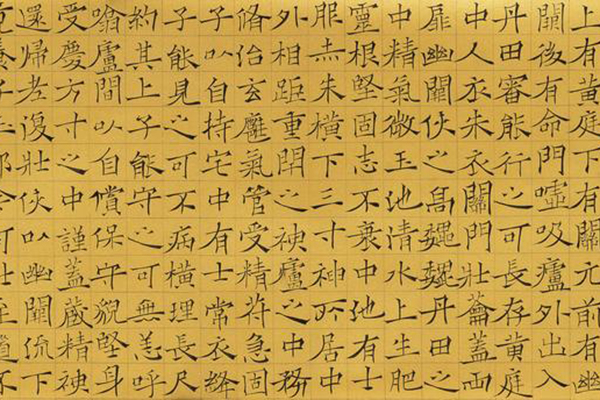 上有黃庭下有關元前有幽
闕後有命門噓吸廬外出入
丹田審能行之可長存黃庭
中人衣朱衣關門壯蘥蓋兩
扉幽闕俠之高巍巍丹田之
中精氣微玉池清水上生肥
靈根堅固志不衰中池有士
服赤朱橫下三寸神所居中
外相距重閉之神廬之中務
脩治玄廱氣管受精苻急固
子以自持宅中有士常衣絳
子能見之可不病橫理長尺
約其上子能守之可無恙呼
噏廬間以自償保守貌堅身
受慶方寸之中謹蓋藏精神
還歸老復壯俠以幽闕流下